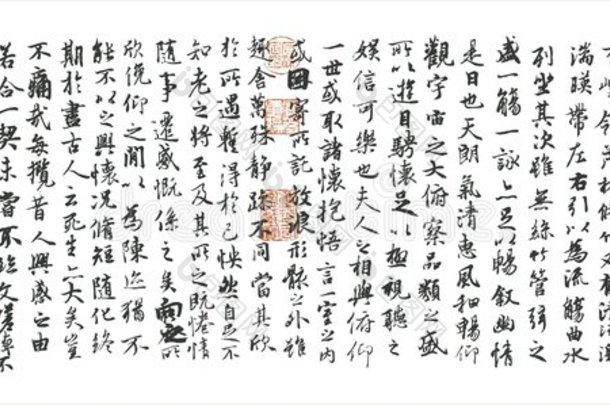 竹又有清流激
湍暎帶左右引以為流觴曲水
列坐其次雖無絲竹管弦之
盛一觴一詠亦足以暢叙幽情
是日也天朗氣清惠風和暢仰
觀宇宙之大俯察品類之盛
所以遊目騁懷足以極視聽之
娛信可樂也夫人之相與俯仰
一世或取諸懷抱悟言一室之內
或因寄所託放浪形骸之外雖
趣舍萬殊靜躁不同當其欣
於所遇暫得於己怏然自足不
知老之將至及其所之既惓情
隨事遷感慨係之矣向之所
欣俛仰之閒以為陳迹猶不
能不以之興懷況脩短隨化終
期於盡古人云死生亦大矣豈
不痛哉每攬昔人興感之由
若合一契未嘗不臨文嗟悼不